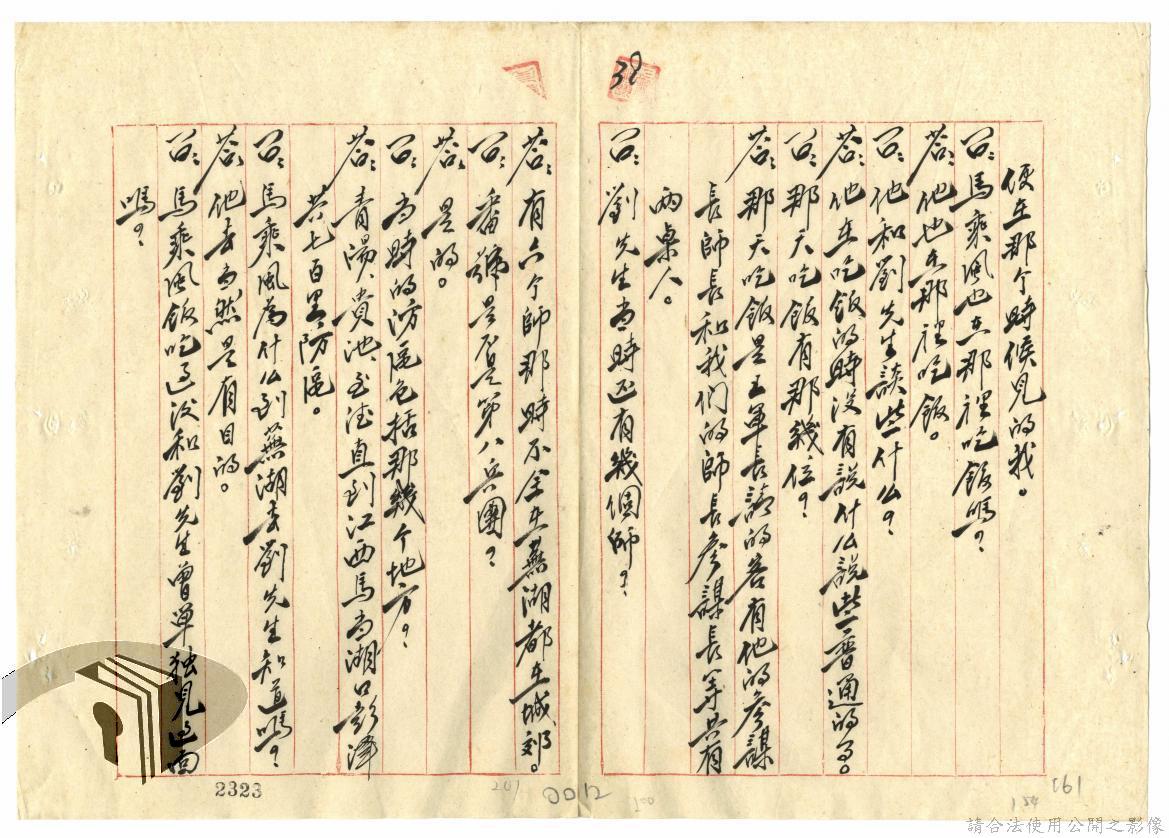 38
便在那个時候見的我。
問：馬乘風也在那裡吃飯嗎？
答：他也在那裡吃飯。
問：他和劉先生談些什么？
答：他在吃飯的時没有說什么說些普通的多。
問：那天吃飯有那幾位？
答：那天吃飯是王軍長請的客有他的參謀
長師長和我们的師長參謀長等共有
两桌人。
問：劉先生當時还有幾個師？
答：有六个師那時不全在蕪湖都在城郊。
問：番號是不是第八兵團？
答：是的。
問：当時的防區包括那幾个地方？
答：青陽、貴池、至德直到江西馬当湖口彭澤
共七百里防區。
問：馬乘風為什么到蕪湖去劉先生知道嗎？
答：他去当然是有目的。
問：馬乘風飯吃过没和劉先生曾单独見过面
嗎？
2323
201
0012
100
154
161
請合法使用公開之影像